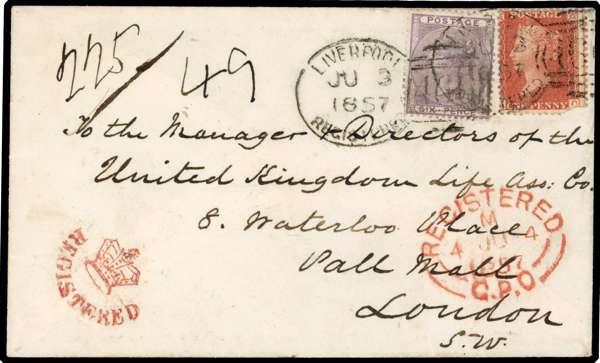 225/49
LIVERPOOL
JU 3
1857
POSTAGE
SIX PENCE
POSTAGE
ONE PENNY
To the Manager & Directors of the
United Kingdom Life Ass: Co.
8. Waterloo Place
Pall Mall
London
S.W.
REGISTERED
M
4 JU 4
1857
G.P.O
REGISTERED